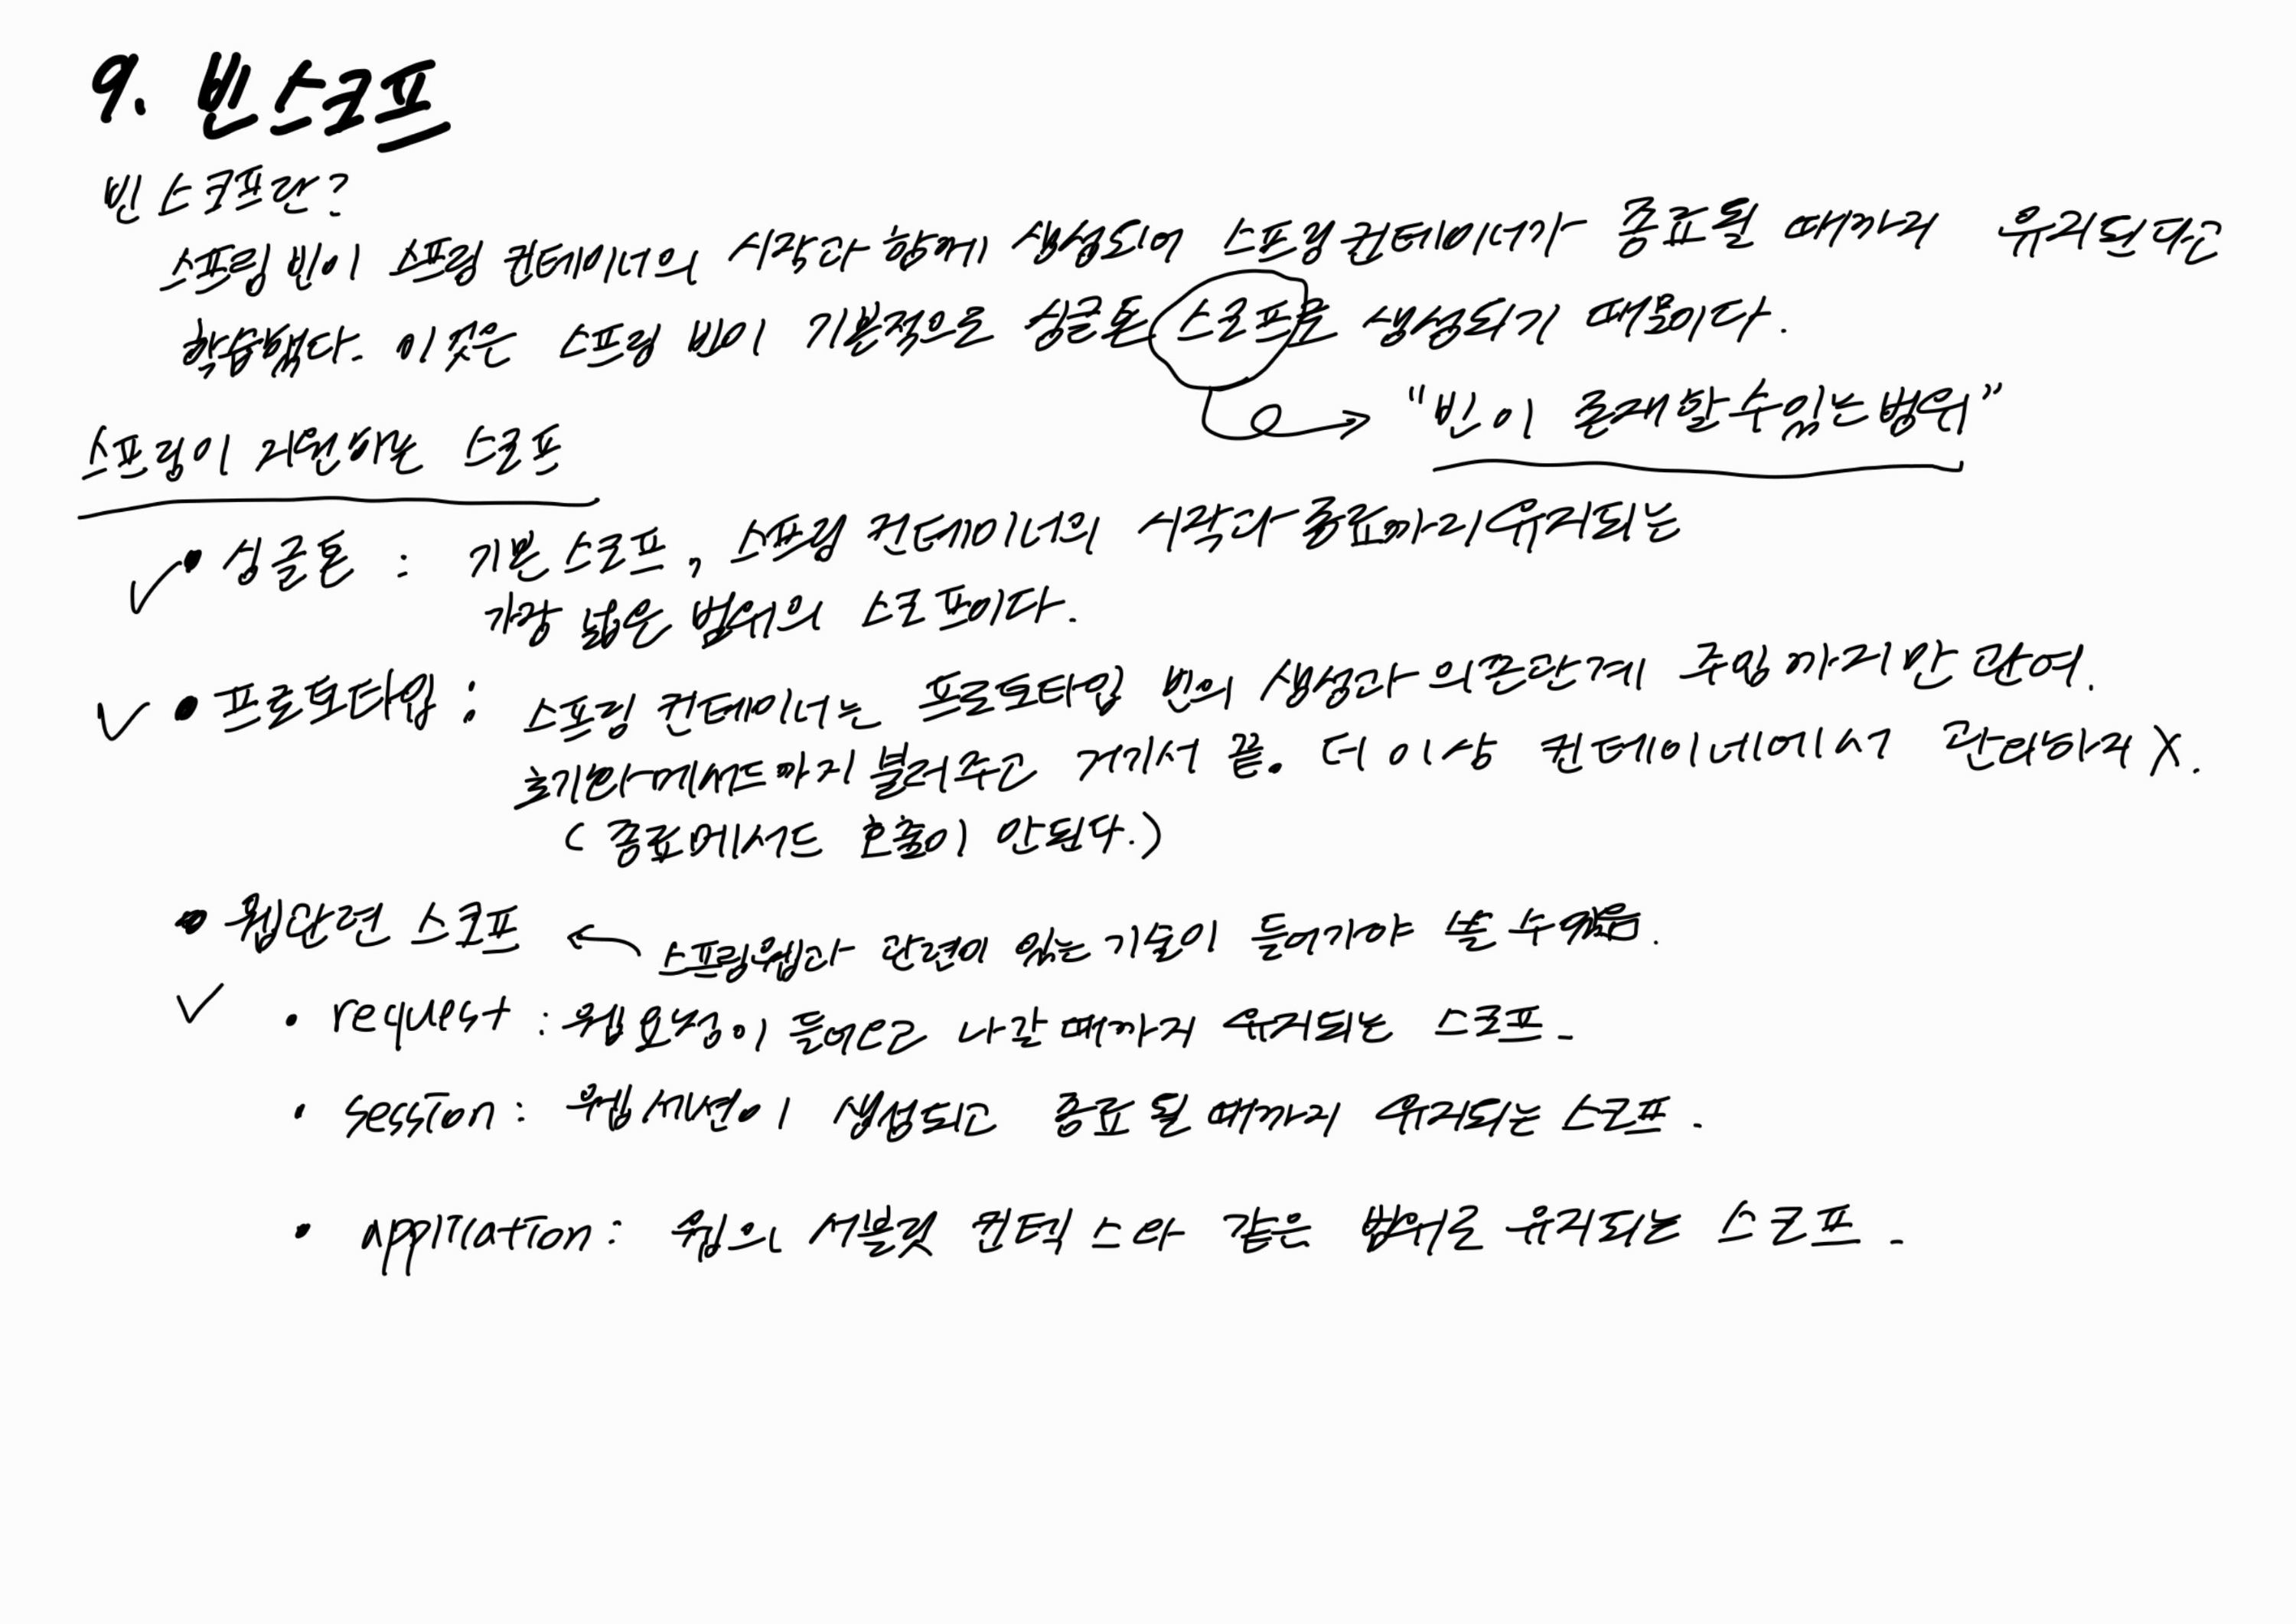 9. 빈 스코프
빈 스코프란?
스프링 빈이 스프링 컨테이너의 시작과 함께 생성되어 스프링 컨테이너가 종료될 때까지 유지된다고
학습했다. 이것은 스프링 빈이 기본적으로 싱글톤 스코프로 생성되기 때문이다.
"빈이 존재할 수 있는 범위"
스프링이 지원하는 스코프
• 싱글톤 : 기본 스코프, 스프링 컨테이너의 시작과 종료까지 유지되는
가장 넓은 범위의 스코프이다.
• 프로토타입 : 스프링 컨테이너는 프로토타입 빈의 생성과 의존관계 주입까지만 관여.
초기화 메서드까지 불러주고 거기서 끝. 더 이상 컨테이네에서 관리하지 X.
( 종료메서드 호출이 안된다.)
• 웹관련 스코프 ← 스프링웹과 관련이 있는 기술이 들어가야 쓸 수 있음.
• request : 웹 요청이 들어오고 나갈 때까지 유지되는 스코프.
• session : 웹 세션이 생성되고 종료 될 때까지 유지되는 스코프.
• application : 웹의 서블릿 컨텍스와 같은 범위로 유지되는 스코프.